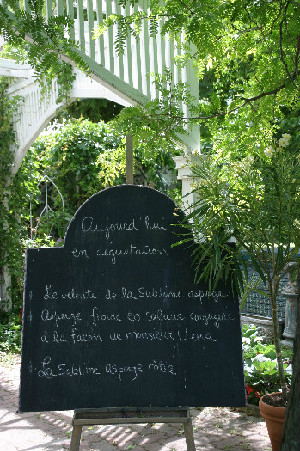 Aujourd'hui
en dégustation
Le velouté de la sublime asperge
Asperge franc en salade conjuguée
à la façon de monsieur
La Sublime asperge rôtie